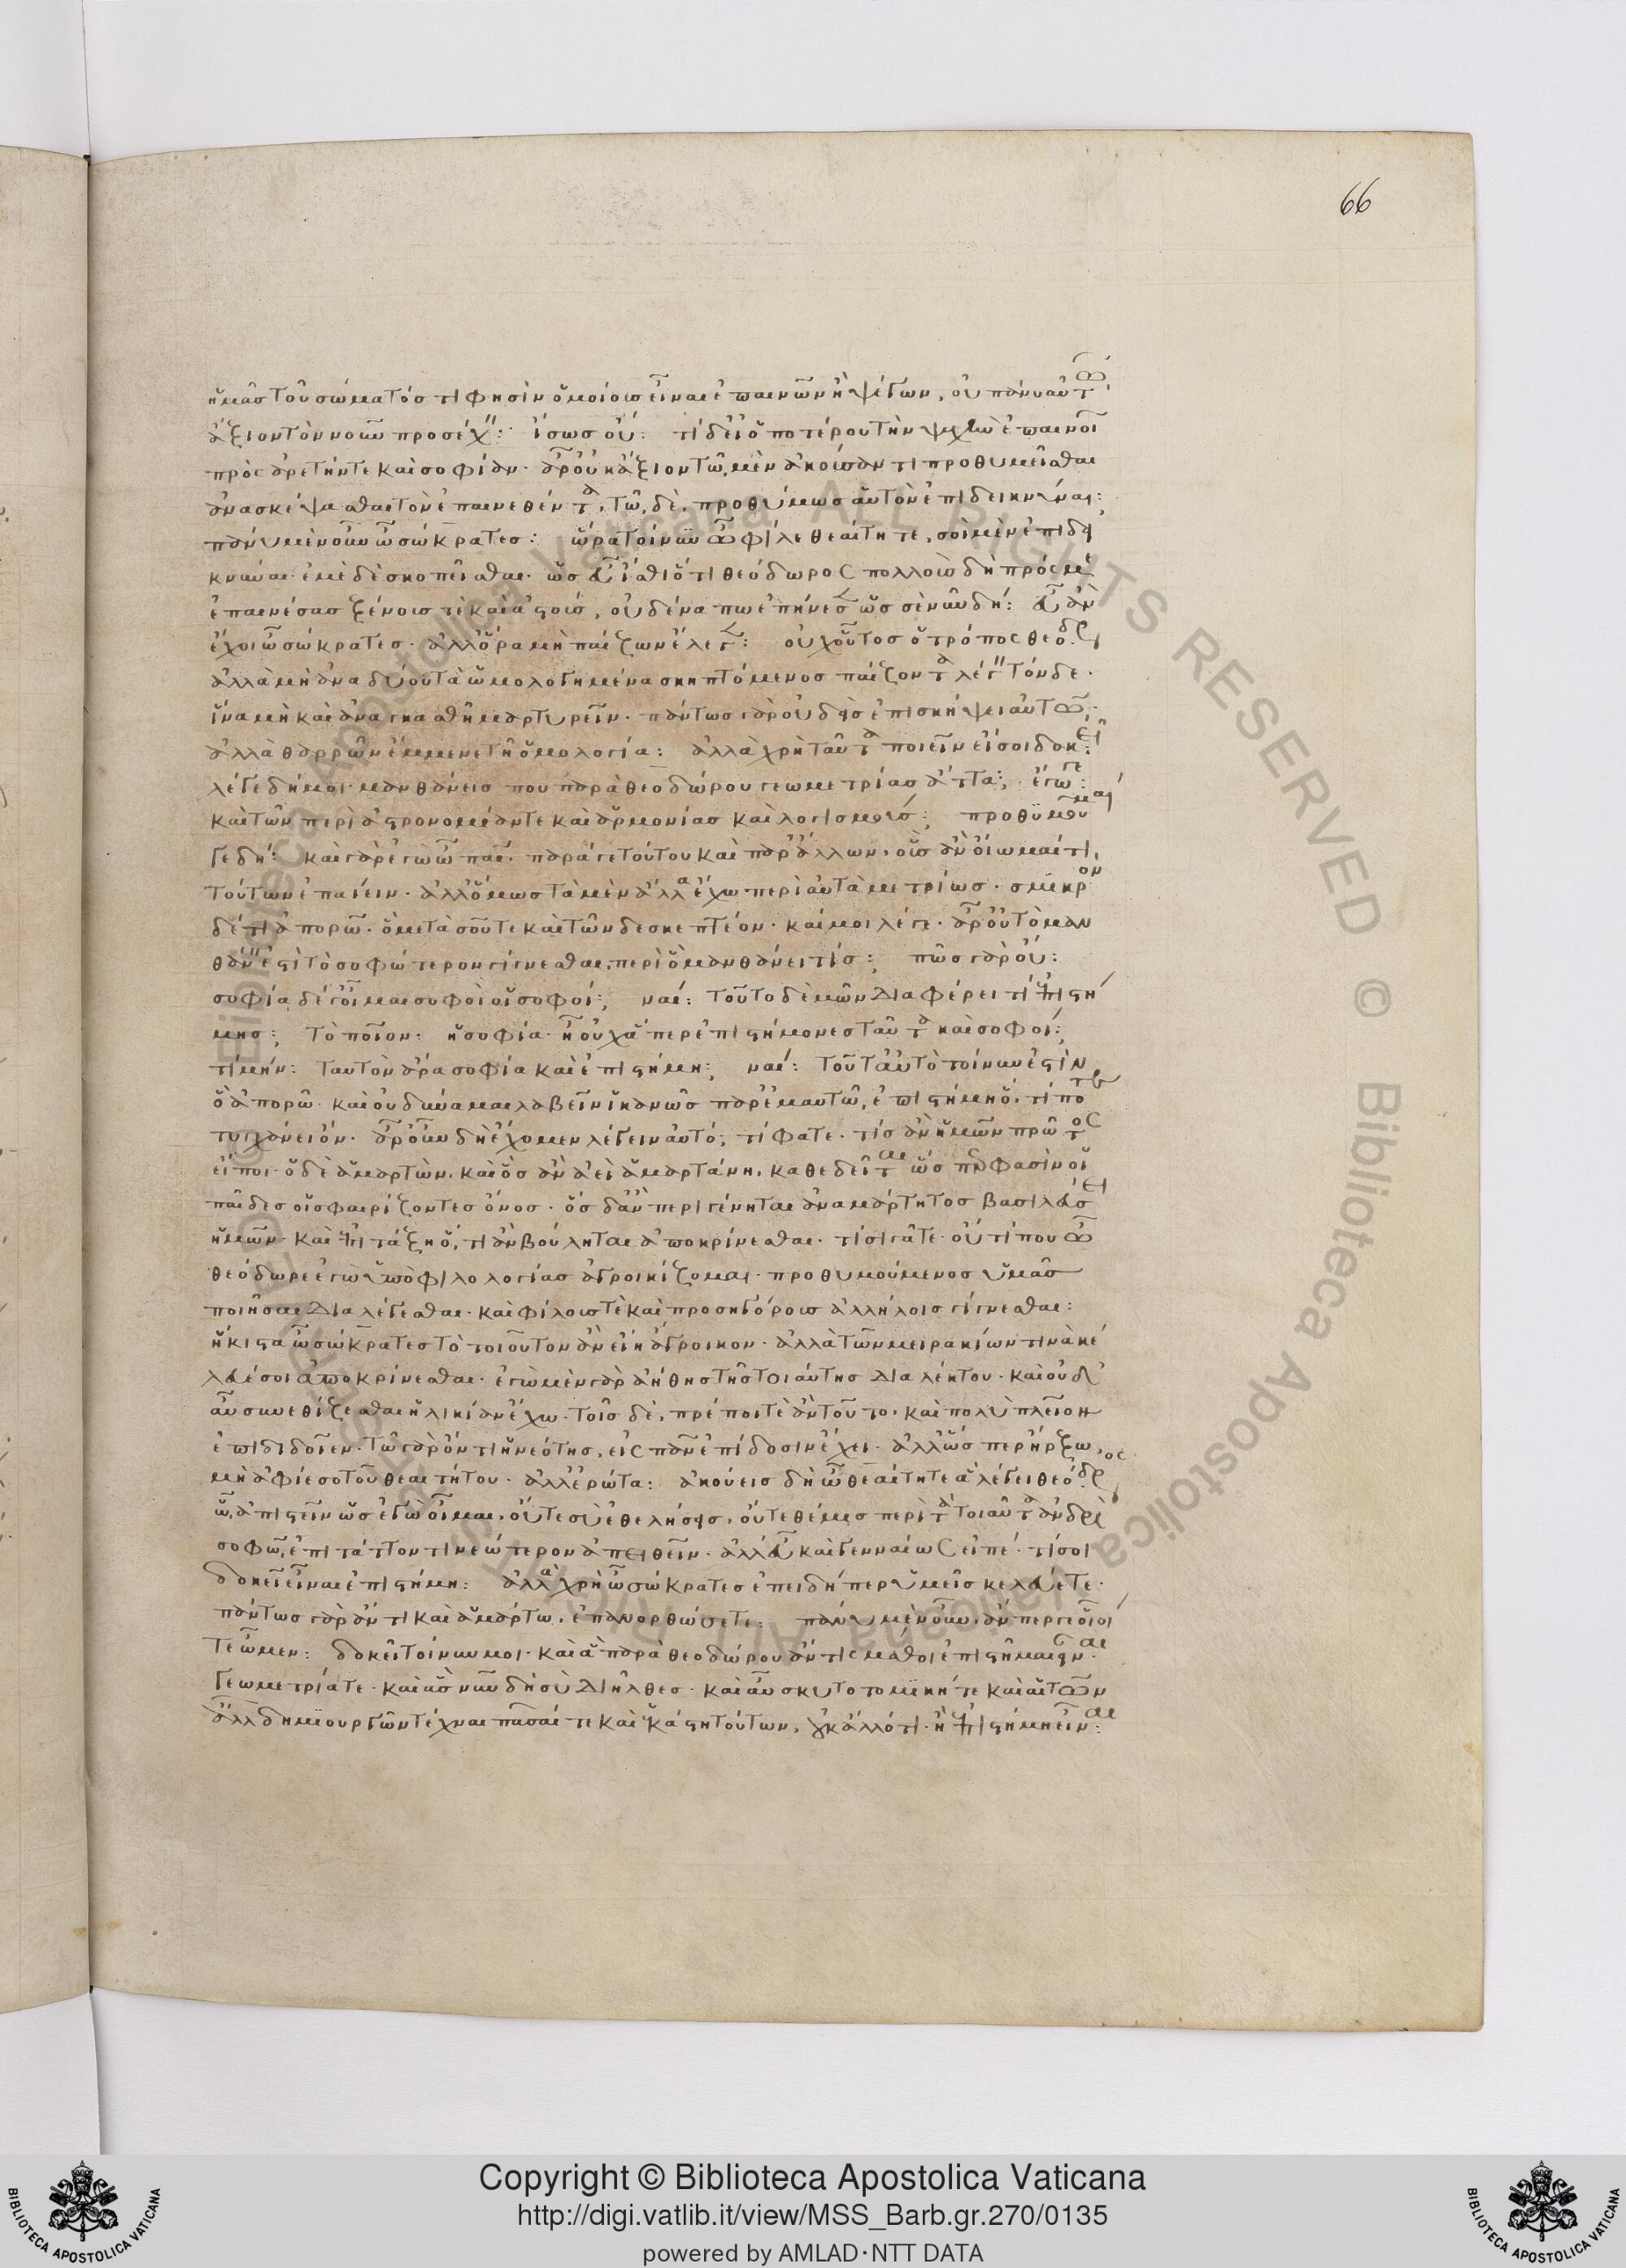 66
ἡμᾶς τοῦ σώματός τι φησὶν ὁμοίους εἶναι ἐπαινῶν ἢ ψέγων, οὐ πάνυ αὐτῶ
ἄξιον τὸν νοῦν προσέχειν: ἴσως οὔ: τί δ' εἰ ὁποτέρου τὴν ψυχὴν ἐπαινοῖ
πρὸς ἀρετήν τε καὶ σοφίαν· ἆρ' οὐκ ἄξιον τῶ μὲν ἀκούσαντι προθυμεῖσθαι
ἀνασκέψασθαι τὸν ἐπαινεθέντα, τῶ δὲ, προθύμως ἑαυτὸν ἐπιδεικνύναι:
πάνυ μὲν οὖν ὦ σώκρατες: ὥρα τοίνυν ὦ φίλε θεαίτητε, σοὶ μὲν ἐπιδει
κνύναι· ἐμὲ δὲ σκοπεῖσθαι· ὡς εὖ ἴσθι ὅτι θεόδωρος πολλοὺς δὴ πρός με
ἐπαινέσας ξένους τὲ καὶ ἀστούς, οὐδένα πω ἐπήνεσεν ὡς σὲ νῦν δή: εὖ ἂν
ἔχοι ὦ σώκρατες· ἀλλ' ὅρα μὴ παίζων ἔλεγεν: οὐχ οὗτος ὁ τρόπος θεοδώρου
ἀλλὰ μὴ ἀναδύου τὰ ὡμολογημένα σκηπτόμενος παίζοντα λέγειν τόνδε·
ἵνα μὴ καὶ ἀναγκασθῆ μαρτυρεῖν· πάντως γὰρ οὐδεὶς ἐπισκήψει αὐτῶ·
ἀλλὰ θαρρῶν ἔμμενε τῆ ὁμολογία: ἀλλὰ χρὴ ταῦτα ποιεῖν εἴ σοι δοκεῖ:
λέγε δή μοι· μανθάνεις που παρὰ θεοδώρου γεωμετρίας ἄττα; ἔγωγε:
καὶ τῶν περὶ ἀστρονομίαν τε καὶ ἁρμονίας καὶ λογισμούς; προθυμοῦμαί
γε δή: καὶ γὰρ ἐγὼ ὦ παῖ· παρά γε τούτου καὶ παρ' ἄλλων, οὓς ἂν οἴωμαί τι
τούτων ἐπαΐειν· ἀλλ' ὅμως τὰ μὲν ἄλλα ἔχω περὶ αὐτὰ μετρίως· σμικρὸν
δέ τι ἀπορῶ· ὃ μετὰ σοῦ τε καὶ τῶνδε σκεπτέον· καί μοι λέγε· ἆρ' οὐ τὸ μαν
θάνειν ἐστὶ τὸ σοφώτερον γίγνεσθαι περὶ ὃ μανθάνει τίς; πῶς γὰρ οὔ:
σοφία δέ γ' οἶμαι σοφοὶ οἱ σοφοί; ναί: τοῦτο δὲ μῶν διαφέρει τί ἐπιστή
μης; τὸ ποῖον: ἡ σοφία· ἢ οὐχ ἅπερ ἐπιστήμονες ταῦτα καὶ σοφοί;
τί μήν: ταυτὸν ἄρα σοφία καὶ ἐπιστήμη; ναί: τοῦτ' αὐτὸ τοίνυν ἐστὶν
ὃ ἀπορῶ· καὶ οὐ δύναμαι λαβεῖν ἱκανῶς παρ' ἐμαυτῶ, ἐπιστήμη ὅ, τί ποτε
τυγχάνει ὄν· ἆρ' οὖν δὴ ἔχομεν λέγειν αὐτό; τί φατε· τίς ἂν ἡμῶν πρῶτος
εἴποι· ὁ δὲ ἁμαρτὼν, καὶ ὃς ἂν ἀεὶ ἁμαρτάνη, καθεδεῖται ὥς περ φασὶν οἱ
παῖδες οἱ σφαιρίζοντες ὄνος· ὃς δ' ἂν περιγένηται ἀναμάρτητος βασιλεύσει
ἡμῶν· καὶ ἐπιτάξη ὅ, τι ἂν βούληται ἀποκρίνεσθαι· τί σιγᾶτε· οὔ τί που ὦ
θεόδωρε ἐγὼ ὑπὸ φιλολογίας ἀγροικίζομαι· προθυμούμενος ὑμᾶς
ποιῆσαι διαλέγεσθαι· καὶ φίλους τὲ καὶ προσηγόρους ἀλλήλοις γίγνεσθαι:
ἥκιστα ὦ σώκρατες τὸ τοιοῦτον ἂν εἴη ἄγροικον· ἀλλὰ τῶν μειρακίων τινὰ κέ
λευέ σοι ἀποκρίνεσθαι· ἐγὼ μὲν γὰρ ἀήθης τῆς τοιαύτης διαλέκτου· καὶ οὐδ'
αὖ συνεθίζεσθαι ἡλικίαν ἔχω· τοῖς δὲ, πρέποι τὲ ἂν τοῦτο· καὶ πολὺ πλεῖον
ἐπιδιδοῖεν· τῶ γὰρ ὄντι ἡ νεότης, εἰς πᾶν ἐπίδοσιν ἔχει· ἀλλ' ὥς περ ἤρξω,
μὴ ἀφίεσο τοῦ θεαιτήτου· ἀλλ' ἐρώτα: ἀκούεις δὴ ὦ θεαίτητε ἃ λέγει θεόδωρος
ὧ ἀπιστεῖν ὡς ἐγὼ οἶμαι, οὔτε σὺ ἐθελήσεις, οὔτε θέμις περὶ τὰ τοιαῦτα ἀνδρὶ
σοφῶ, ἐπιτάττοντι νεώτερον ἀπειθεῖν· ἀλλ' εὖ καὶ γενναίως εἰπέ· τί σοι
δοκεῖ εἶναι ἐπιστήμη: ἀλλὰ χρὴ ὦ σώκρατες ἐπειδήπερ ὑμεῖς κελεύετε·
πάντως γὰρ ἄν τι καὶ ἁμάρτω, ἐπανορθώσετε: πάνυ μὲν οὖν, ἄν περ γε οἷοί
τε ὦμεν: δοκεῖ τοίνυν μοι· καὶ ἃ παρὰ θεοδώρου ἄν τις μάθοι ἐπιστῆμαι εἶναι·
γεωμετρία τε· καὶ ἃς νῦν δὴ σὺ διῆλθες· καὶ αὖ σκυτοτομική τε καὶ αἱ τῶν
ἄλλων δημιουργῶν τέχναι πᾶσαί τε καὶ ἑκάστη τούτων, οὐκ ἄλλό τι ἢ ἐπιστήμη εἶναι:
Copyright © Biblioteca Apostolica Vaticana
http://digi.vatlib.it/view/MSS_Barb.gr.270/0135
powered by AMLAD·NTT DATA